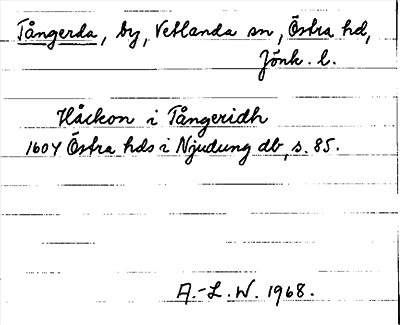 Tångerda, by, Vetlanda sn, Östra hd,
Jönk. l.
Håckon i Tångeridh
1604 Östra hds i Njudung db, s. 85.
A.-L. W. 1968.